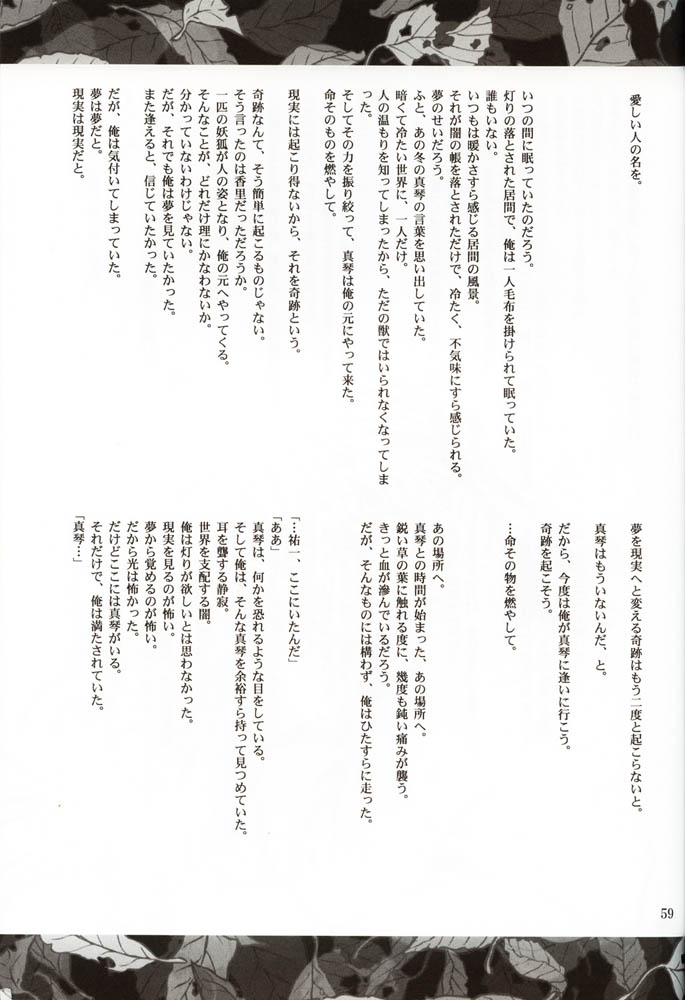 愛しい人の名を。
いつの間に眠っていたのだろう。
灯りの落とされた居間で、俺は一人毛布を掛けられて眠っていた。
誰もいない。
いつもは暖かさすら感じる居間の風景。
それが闇の帳を落とされただけで、冷たく、不気味にすら感じられる。
夢のせいだろう。
ふと、あの冬の真琴の言葉を思い出していた。
暗くて冷たい世界に、一人だけ。
人の温もりを知ってしまったから、ただの獣ではいられなくなってしま
った。
そしてその力を振り絞って、真琴は俺の元にやって来た。
命そのものを燃やして。
現実には起こり得ないから、それを奇跡という。
奇跡なんて、そう簡単に起こるものじゃない。
そう言ったのは香里だっただろうか。
一匹の妖狐が人の姿となり、俺の元へやってくる。
そんなことが、どれだけ理にかなわないか。
分かっていないわけじゃない。
だが、それでも俺は夢を見ていたかった。
また逢えると、信じていたかった。
だが、俺は気付いてしまっていた。
夢は夢だと。
現実は現実だと。
夢を現実へと変える奇跡はもう二度と起こらないと。
真琴はもういないんだ、と。
だから、今度は俺が真琴に逢いに行こう。
奇跡を起こそう。
…命その物を燃やして。
あの場所へ。
真琴との時間が始まった、あの場所へ。
鋭い草の葉に触れる度に、幾度も鈍い痛みが襲う。
きっと血が滲んでいるだろう。
だが、そんなものには構わず、俺はひたすらに走った。
「…祐一、ここにいたんだ」
「ああ」
真琴は、何かを恐れるような目をしている。
そして俺は、そんな真琴を余裕すら持って見つめていた。
耳を聾する静寂。
世界を支配する闇。
俺は灯りが欲しいとは思わなかった。
現実を見るのが怖い。
夢から覚めるのが怖い。
だから光は怖かった。
だけどここには真琴がいる。
それだけで、俺は満たされていた。
「真琴…」
59